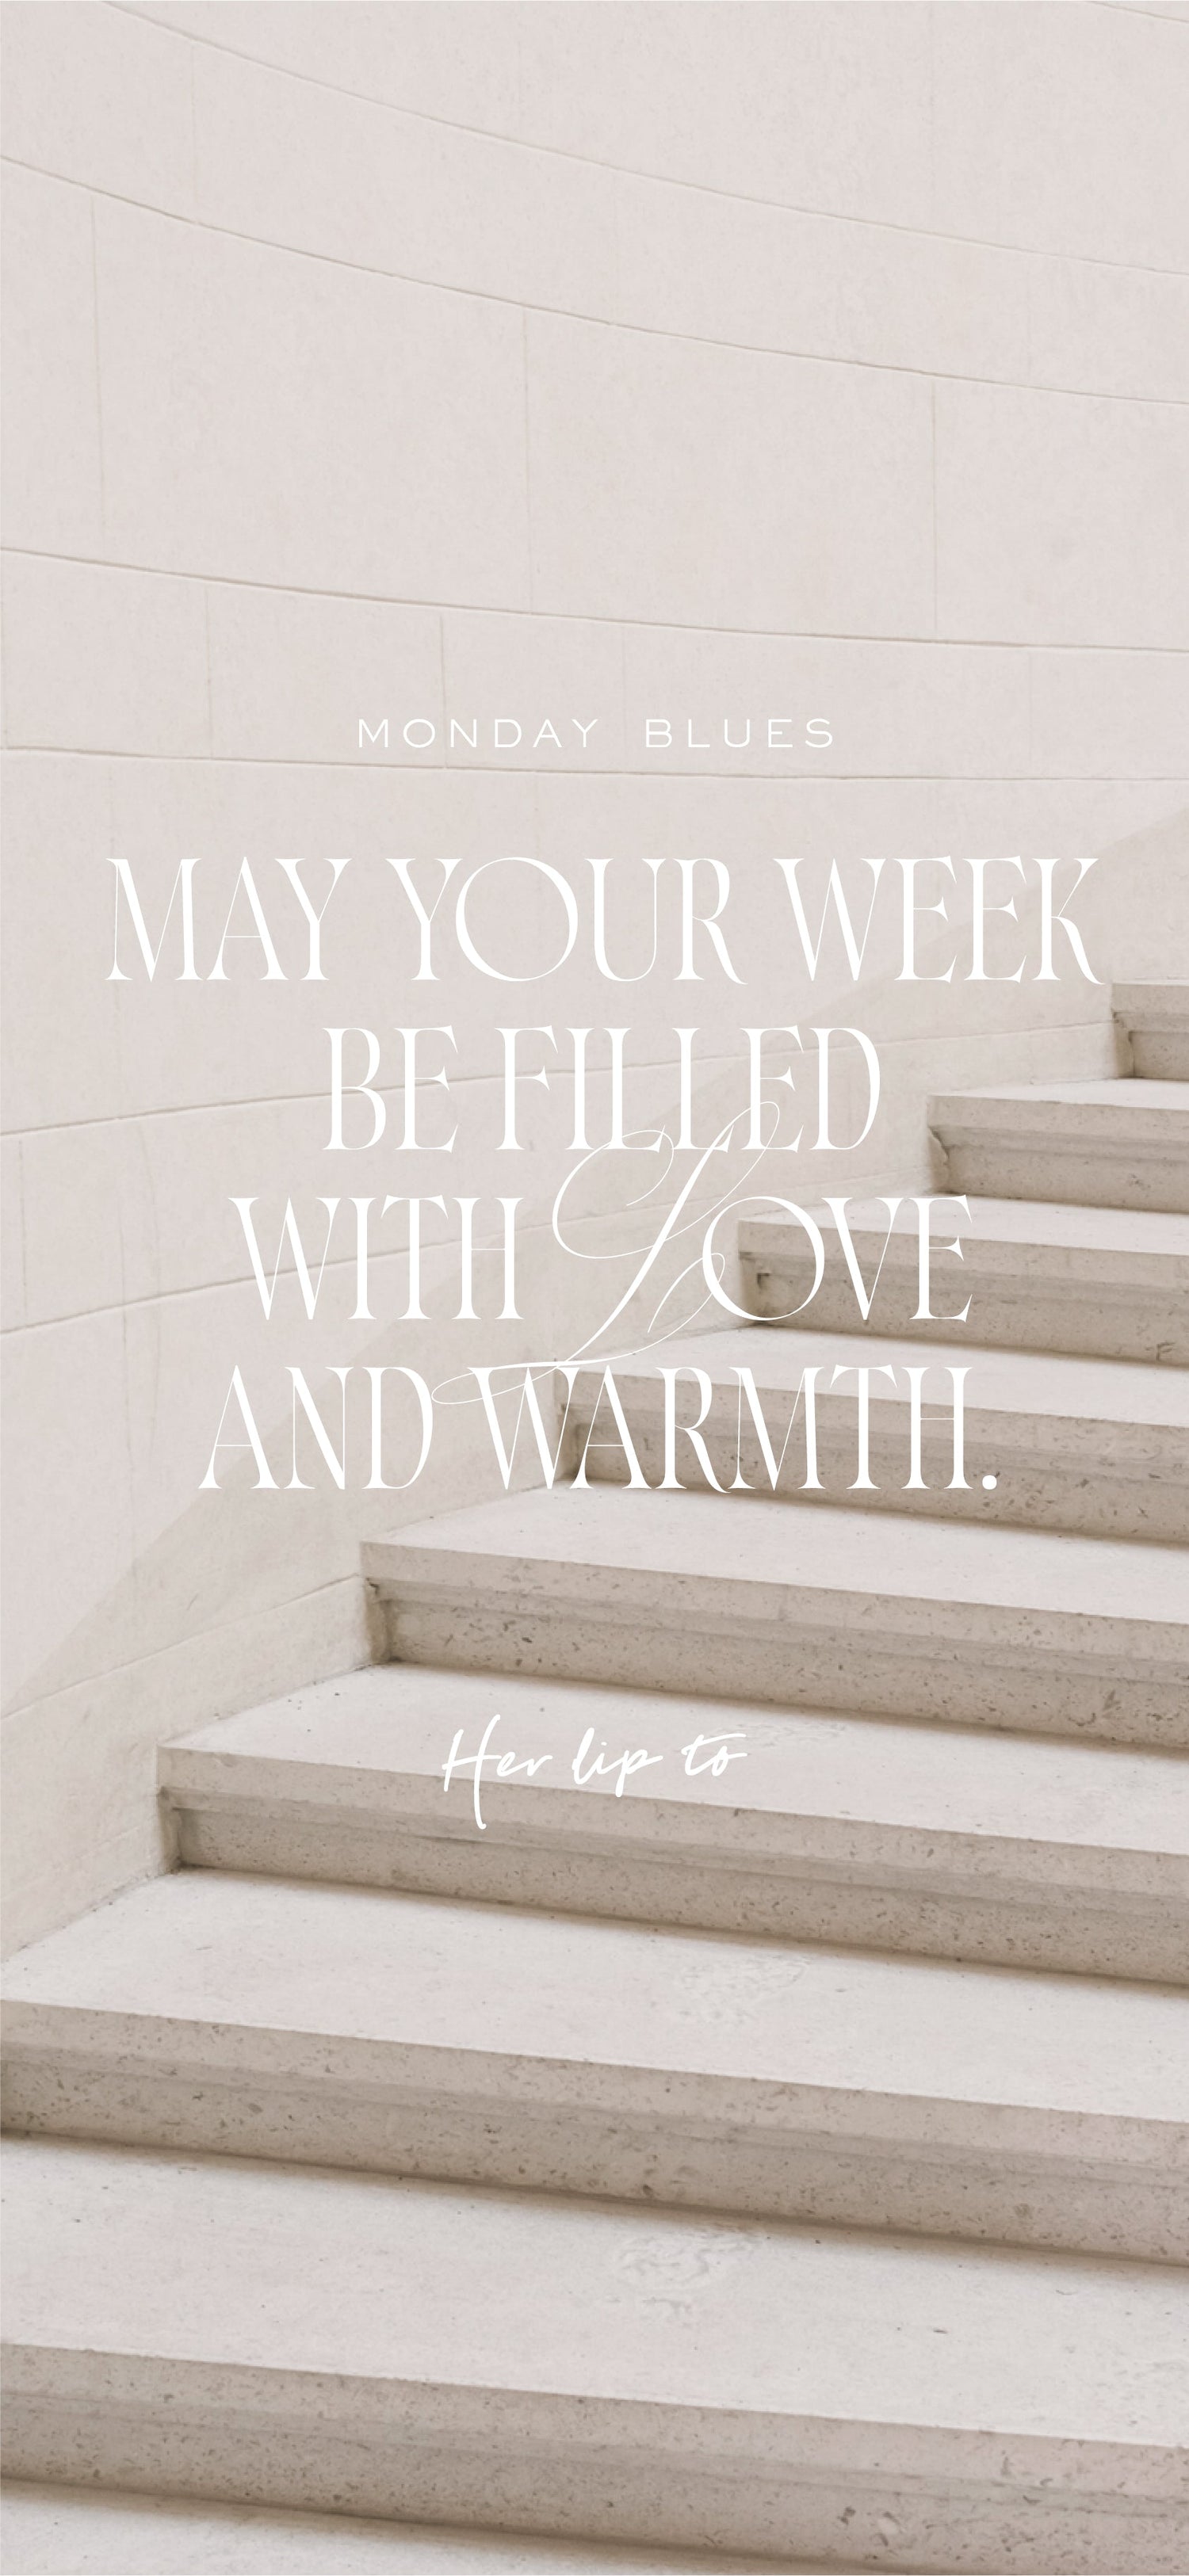 MONDAY BLUES
MAY YOUR WEEK
BE FILLED
WITH LOVE
AND WARMTH.
Her lip to